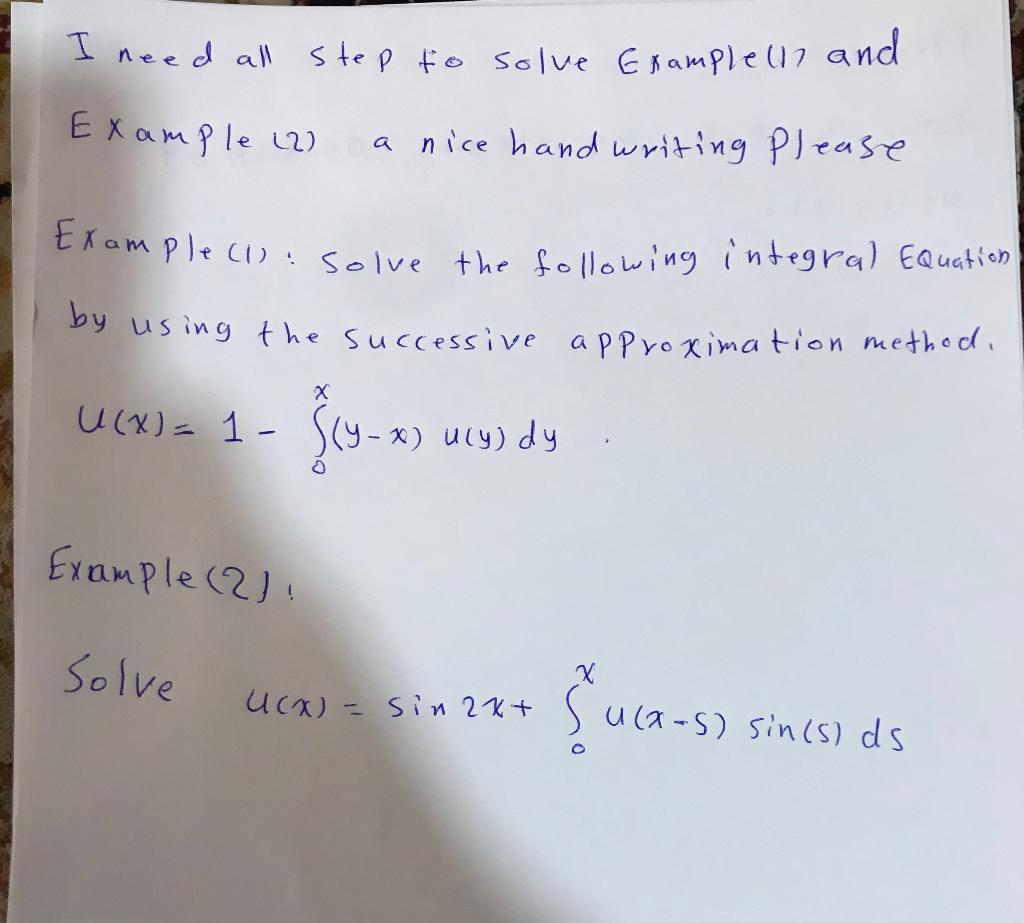 I need all step to solve Example(1) and
Example (2) a nice hand writing Please
Example (1): Solve the following integral EQuation
by using the successive approximation method.
U(x) = 1 - ∫₀ˣ (y-x) u(y) dy .
Example (2):
Solve u(x) = sin 2x + ∫₀ˣ u(x-s) sin(s) ds